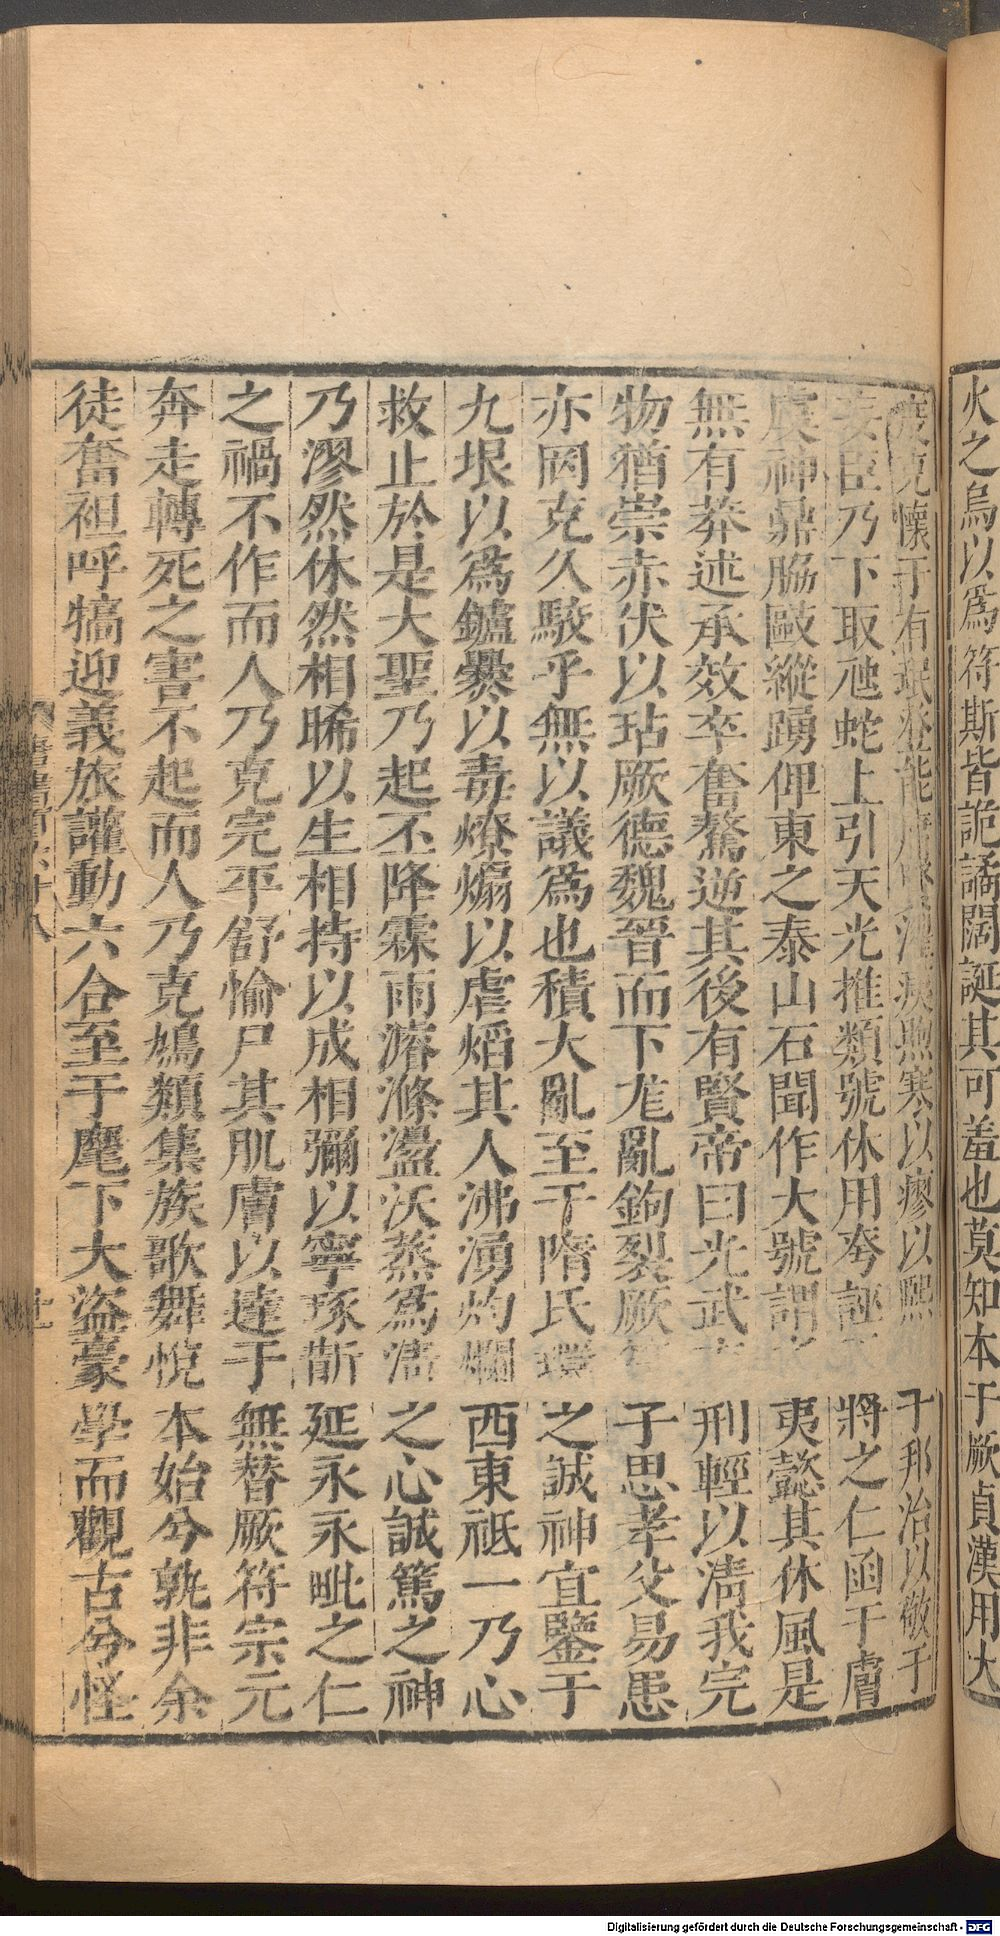 火之烏以為符斯皆詭譎闊誕其可羞也莫知本于厥貞漢用大
度克懷于有氓登能庸賢濯痍煦寒以瘳以熙于邦治以敬于
妄臣乃下取虺蛇上引天光推類號休用夸誣將之仁函于膚
虞神鼎脇敺縱踴俾東之泰山石聞作大號謂夷懿其休風是
無有莽述承效卒奮驁逆其後有賢帝曰光武刑輕以清我完
物猶崇赤伏以玷厥德魏晉而下尨亂鉤裂厥符子思孝父易患
亦罔克久駮乎無以議爲也積大亂至于隋氏環之誠神宜鑒于
九垠以爲鑪爨以毒燎煽以虐焰其人沸湧灼爛西東祗一乃心
救止於是大聖乃起丕降霖雨濬滌盪沃蒸爲清之心誠篤之神
乃漻然休然相睎以生相持以成相彌以寧琢斮延永永毗之仁
之禍不作而人乃克完平舒愉尸其肌膚以達于無替厥符宗元
奔走轉死之害不起而人乃克鳩類集族歌舞悅本始兮孰非余
徒奮袒呼犒迎義旅讙動六合至于麾下大盜豪學而觀古兮怪
Digitalisierung gefördert durch die Deutsche Forschungsgemeinschaft - DFG